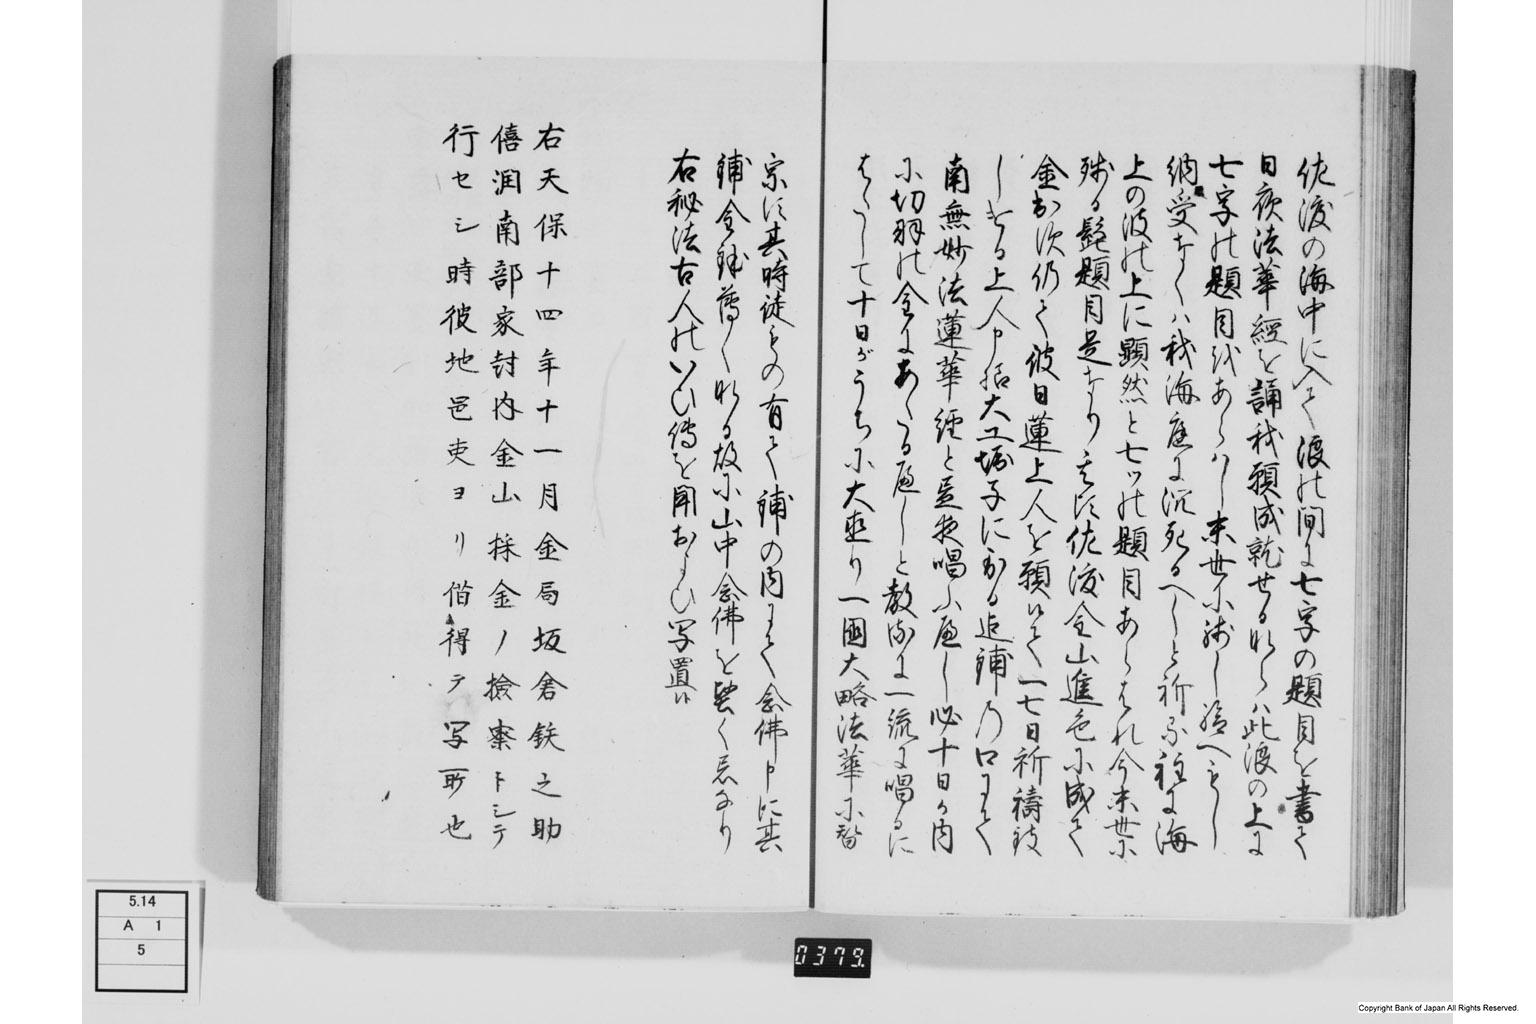 佐渡の海中に入て浪の間に七字の題目を書て
日夜法華經を誦我願成就せるならハ此浪の上に
七字の題目をあらハし末世に残し給へもし
納受なくハ我海底に沉死るへしと祈
上の波の上に顕然と七ツの題目あらはれ今末世に
残る髭題目是なり
佐渡金山進色に成て
金出次仍て彼日蓮上人を願ひて一七日祈祷致
しける上人申
大工堀子に
鋪の口にて
南無妙法蓮華經と
唱
へし必十日の内
に切羽の金にあたるへしと教
一統に唱るに
はたして十日がうちに大直り一國大略法華に
宗に
其時徒もの有て鋪の内にて念佛申に其
鋪金
薄くなる故に山中念佛を堅く忌なり
右秘法古人のいひ傳を聞およひ写置
右天保十四年十一月金局坂倉鉄之助
僖潤南部家封内金山採金ノ撿察トシテ
行セシ時彼地邑吏ヨリ借得テ写所也
5.14
A 1
5
0379.
Copyright Bank of Japan All Rights Reserved.